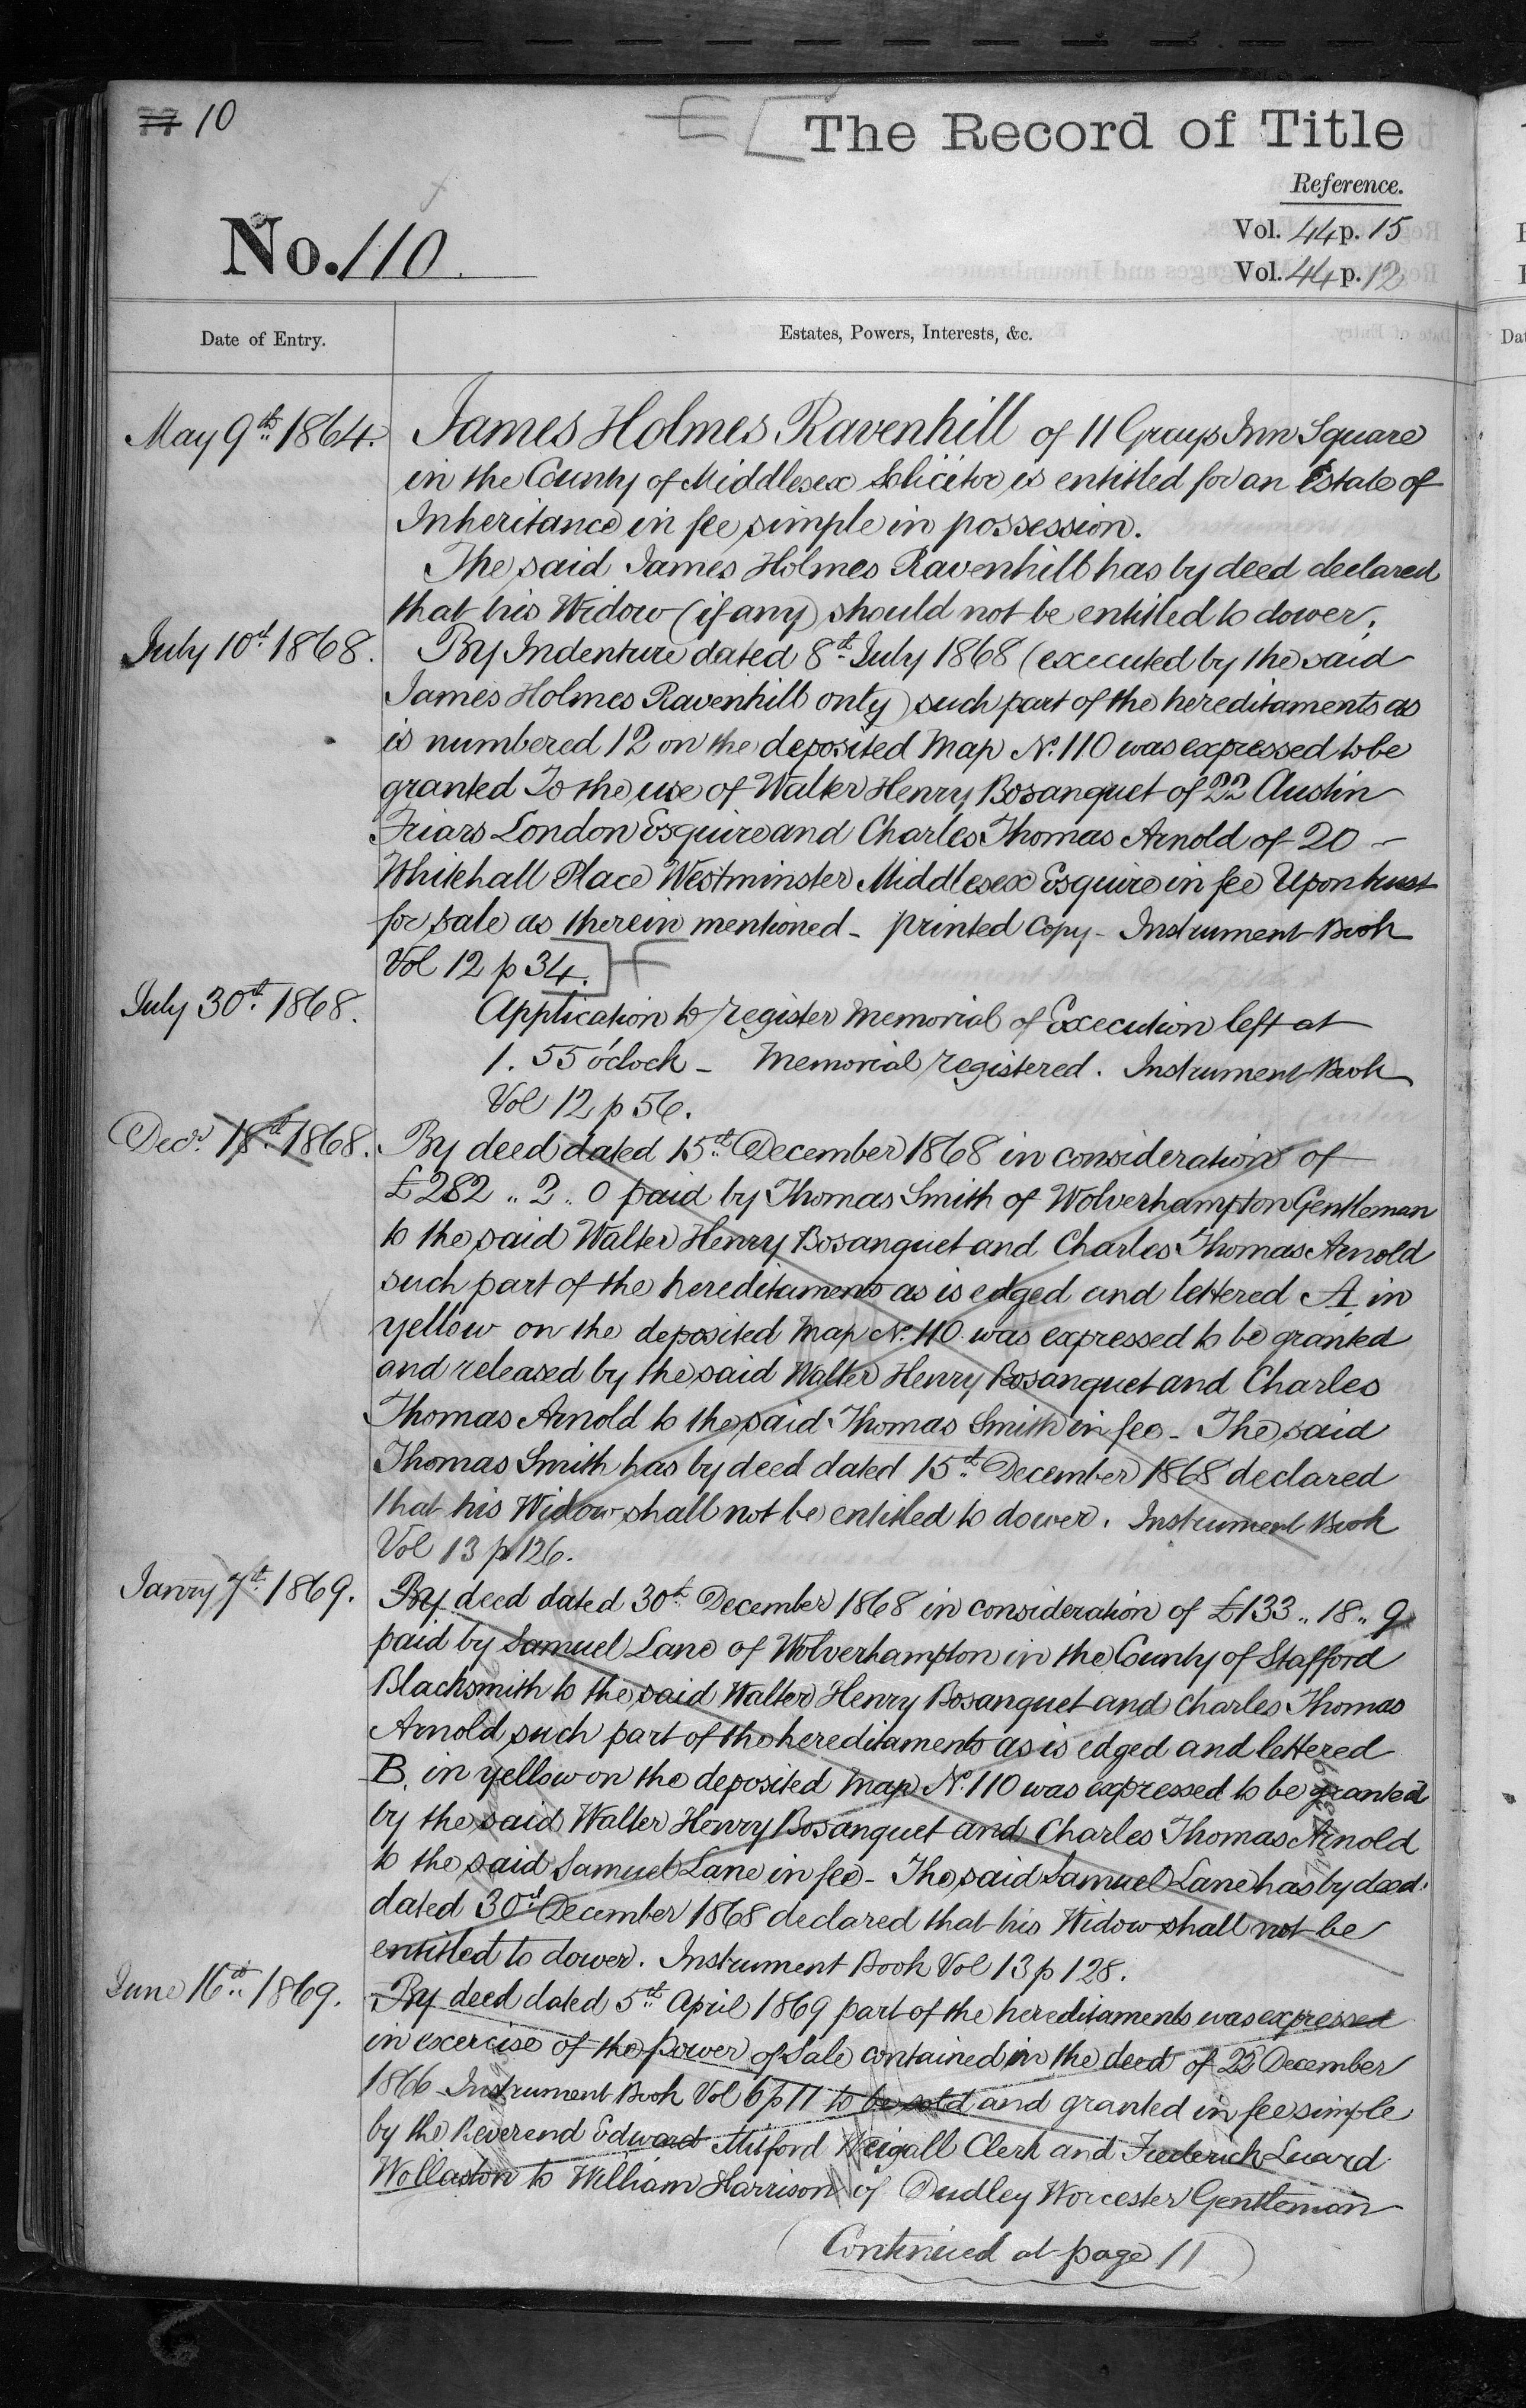 10
The Record of Title
Reference.
Vol. 44 p. 15
No. 110.
Vol. 44 p. 12
Date of Entry.
Estates, Powers, Interests, &c.
May 9th 1864.
James Holmes Ravenhill of 11 Grays Inn Square
in the County of Middlesex Solicitor is entitled for an Estate of
Inheritance in fee simple in possession.
The said James Holmes Ravenhill has by deed declared
that his Widow (if any) should not be entitled to dower.
July 10th 1868.
By Indenture dated 8th July 1868 (executed by the said
James Holmes Ravenhill only) such part of the hereditaments as
is numbered 12 on the deposited Map No. 110 was expressed to be
granted To the use of Walter Henry Bosanquet of 22 Austin
Friars London Esquire and Charles Thomas Arnold of 20 -
Whitehall Place Westminster Middlesex Esquire in fee Upon trust
for sale as therein mentioned - printed Copy - Instrument Book
Vol 12 p 34.
July 30th 1868.
Application to register Memorial of Execution left at
1. 55 o'clock - Memorial registered. Instrument Book
Vol 12 p 56.
Decr 18th 1868.
By deed dated 15th December 1868 in consideration of
£282 .. 2 .. 0 paid by Thomas Smith of Wolverhampton Gentleman
to the said Walter Henry Bosanquet and Charles Thomas Arnold
such part of the hereditaments as is edged and lettered A in
yellow on the deposited Map No. 110 was expressed to be granted
and released by the said Walter Henry Bosanquet and Charles
Thomas Arnold to the said Thomas Smith in fee - The said
Thomas Smith has by deed dated 15th December 1868 declared
that his Widow shall not be entitled to dower. Instrument Book
Vol 13 p 126.
Janry 7th 1869.
By deed dated 30th December 1868 in consideration of £133 .. 18 .. 9
paid by Samuel Lane of Wolverhampton in the County of Stafford
Blacksmith to the said Walter Henry Bosanquet and Charles Thomas
Arnold such part of the hereditaments as is edged and lettered
B. in yellow on the deposited Map No. 110 was expressed to be granted
by the said Walter Henry Bosanquet and Charles Thomas Arnold
to the said Samuel Lane in fee - The said Samuel Lane has by deed
dated 30th December 1868 declared that his Widow shall not be
entitled to dower. Instrument Book Vol 13 p 128.
June 16th 1869.
By deed dated 5th April 1869 part of the hereditaments was expressed
in exercise of the power of Sale contained in the deed of 22 December
1866 Instrument Book Vol 6 p 11 to be sold and granted in fee simple
by the Reverend Edward Mitford Weigall Clerk and Frederick Luard
Wollaston to William Harrison of Dudley Worcester Gentleman
(Continued at page 11)